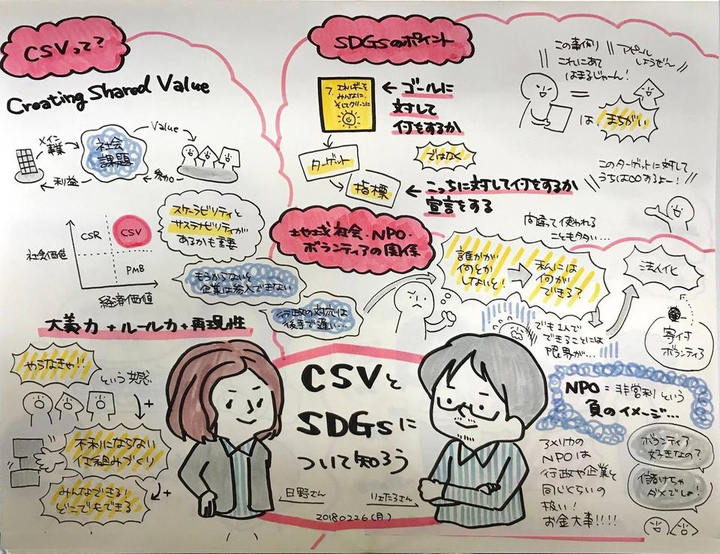 CSVって?
Creating Shared Value
メイン
事業
社会
課題
Value
参加
利益
社会価値
CSR
CSV
PMB
経済価値
スケーラビリティと
サステナビリティが
あるかも重要
もうからないと
企業は参入できない
大義力+ルール力+再現性
やらなきゃ!!
という共感
+
不利にならない
仕組みづくり
+
みんなできる!
どこでもできる
SDGsのポイント
7.エネルギーを
みんなに、
そしてクリーンに
ゴールに
対して
何をするか
ではなく
ターゲット
指標
こっちに対して何をするか
宣言をする
この事例
これにあて
はまるじゃーん!
アピール
しようぜん
=
は まちがい
このターゲットに対して
うちは〇〇するよー!
間違って使われる
ことも多い…
地域社会・NPO・
ボランティアの関係
行政の対応は
後手で遅い…
誰かが
何とか
しないと!
私には
何が
できる?
でも1人で
できることには
限界が…
法人化
寄付
ボランティア
NPO=非営利という
負のイメージ…
アメリカの
NPOは
行政や企業と
同じくらいの
扱い!
お金大事!!!!
ボランティア
好きなので
儲けちゃ
ダメでしょ!
CSVと
SDGsに
ついて知ろう
日野さん
りょたろさん
20180226(月)